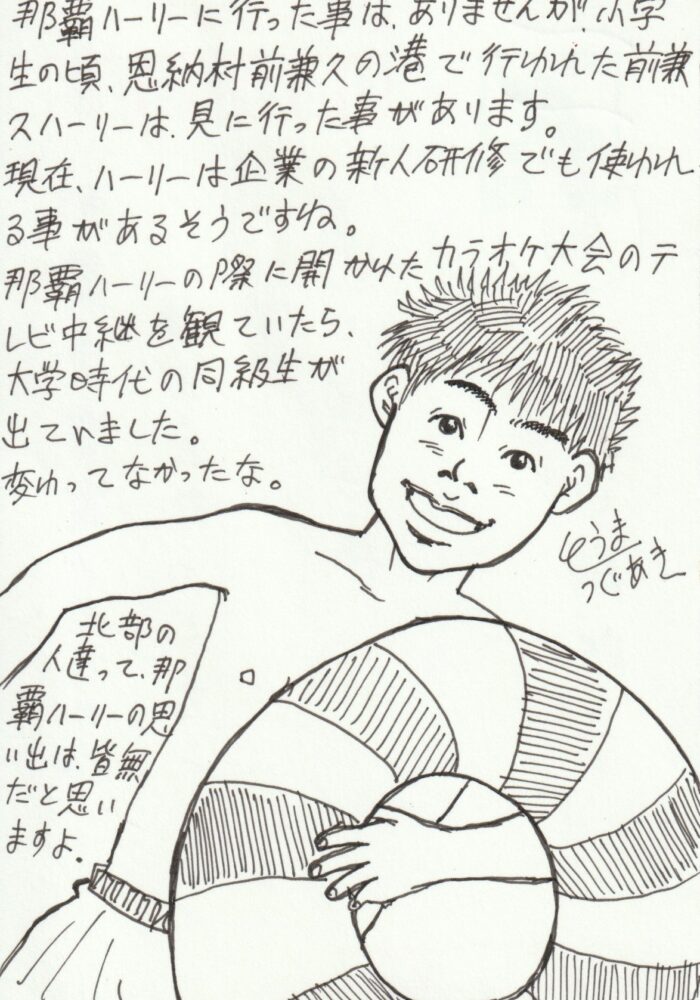 那覇ハーリーに行った事は、ありませんが、小学
生の頃、恩納村前兼久の港で行われた前兼
久ハーリーは、見に行った事があります。
現在、ハーリーは企業の新人研修でも使われ
る事があるそうですね。
那覇ハーリーの際に開かれたカラオケ大会のテ
レビ中継を観ていたら、
大学時代の同級生が
出ていました。
変わってなかったな。
そうま
つぐあき
北部の
人達って、那
覇ハーリーの思
い出は、皆無
だと思い
ますよ。